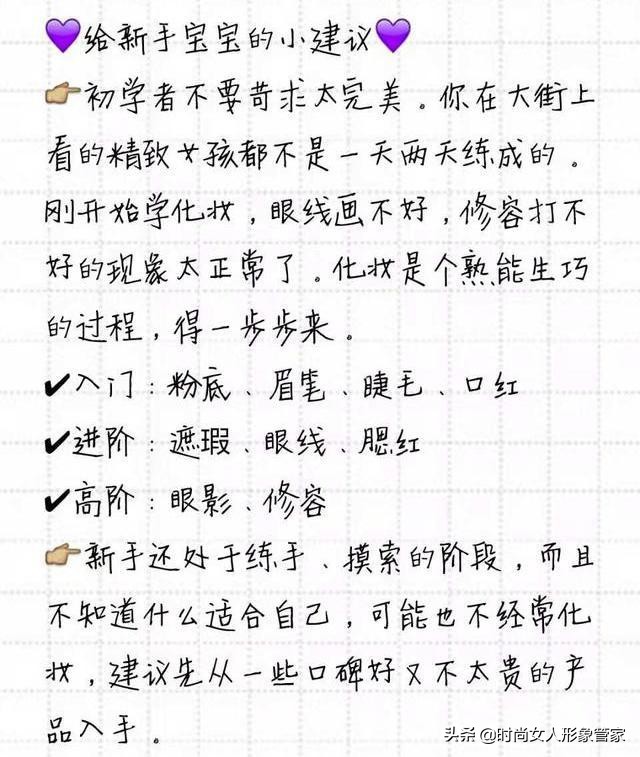 💜给新手宝宝的小建议💜
👉初学者不要苛求太完美。你在大街上
看的精致女孩都不是一天两天练成的。
刚开始学化妆，眼线画不好，修容打不
好的现象太正常了。化妆是个熟能生巧
的过程，得一步步来。
✔入门：粉底、眉笔、睫毛、口红
✔进阶：遮瑕、眼线、腮红
✔高阶：眼影、修容
👉新手还处于练手、摸索的阶段，而且
不知道什么适合自己，可能也不经常化
妆，建议先从一些口碑好又不太贵的产
品入手。
头条 @时尚女人形象管家